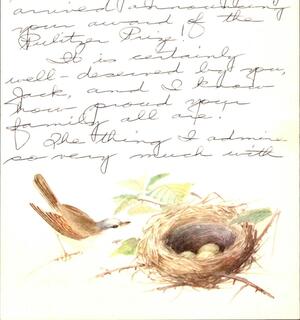 arrived announcing
your award of the
Pulitzer Prize!
It is certainly
well-deserved by you,
Jack, and I know
how proud your
family all are.
The thing I admire
so very much with